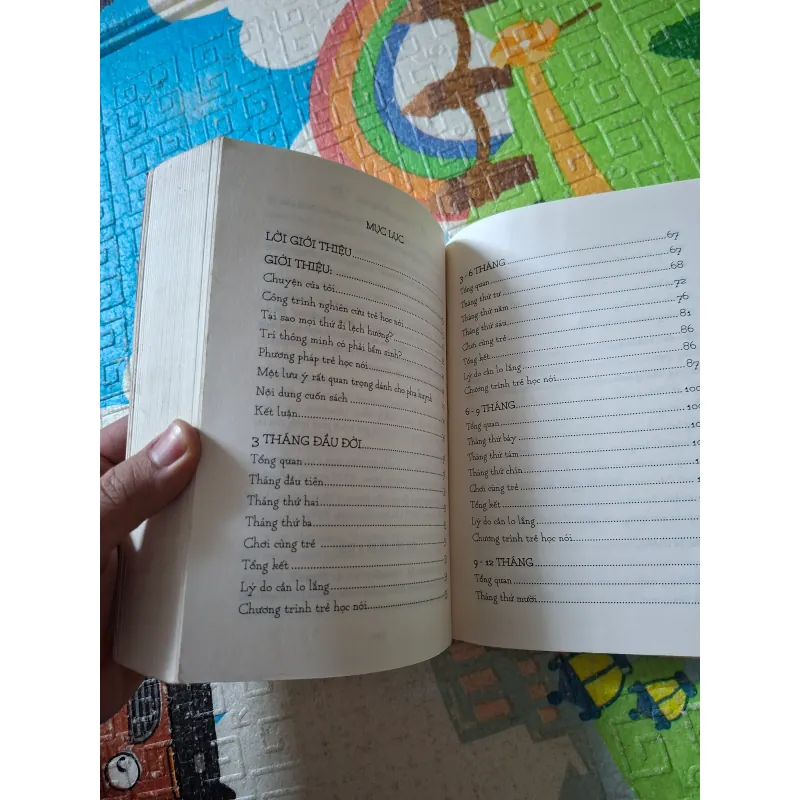 MỤC LỤC
LỜI GIỚI THIỆU
GIỚI THIỆU:
Chuyện của tôi
Công trình nghiên cứu trẻ học nói
Tại sao mọi thứ đi lệch hướng?
Trí thông minh có phải bẩm sinh?
Phương pháp trẻ học nói
Một lưu ý rất quan trọng dành cho phụ huynh
Nội dung cuốn sách
Kết luận
3 THÁNG ĐẦU ĐỜI
Tổng quan
Tháng đầu tiên
Tháng thứ hai
Tháng thứ ba
Chơi cùng trẻ
Tổng kết
Lý do cần lo lắng
Chương trình trẻ học nói
3 - 6 THÁNG 67
Tổng quan 67
Tháng thứ tư 68
Tháng thứ năm 72
Tháng thứ sáu 76
Chơi cùng trẻ 81
Tổng kết 86
Lý do cần lo lắng 86
Chương trình trẻ học nói 87
6 - 9 THÁNG 100
Tổng quan 100
Tháng thứ bảy
Tháng thứ tám
Tháng thứ chín
Chơi cùng trẻ
Tổng kết
Lý do cần lo lắng
Chương trình trẻ học nói
9 - 12 THÁNG
Tổng quan
Tháng thứ mười